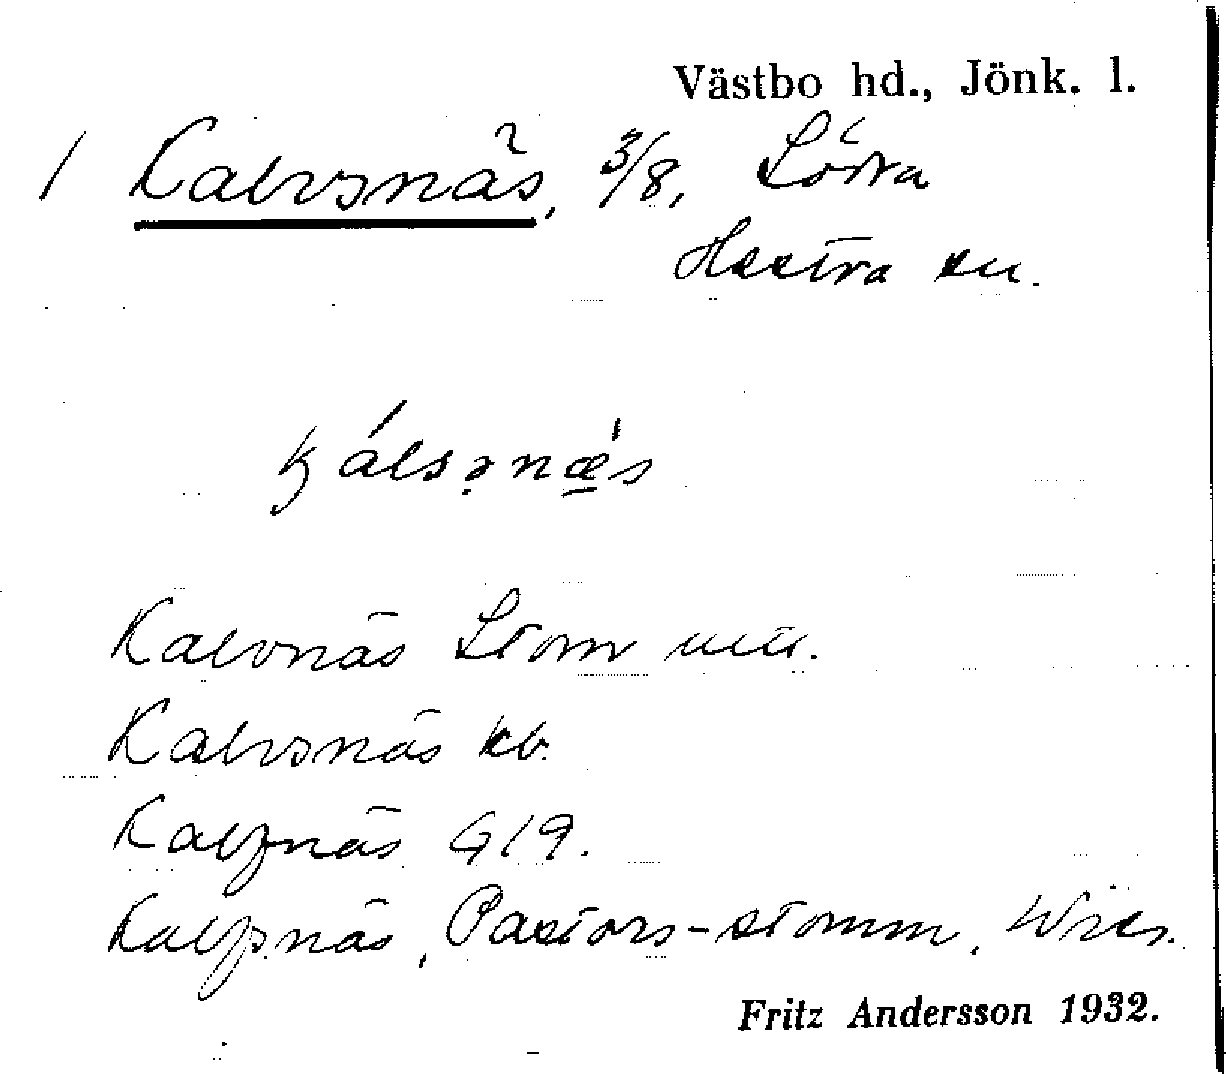 Västbo hd., Jönk. l.
1 Kalvsnäs, 3/8, Södra
Hestra sn.
kálsənæ̀s
Kalvnäs Stom
Kalvsnäs kb.
Kalfnäs G19.
Kalfsnäs, Pastors-stomm,
Fritz Andersson 1932.